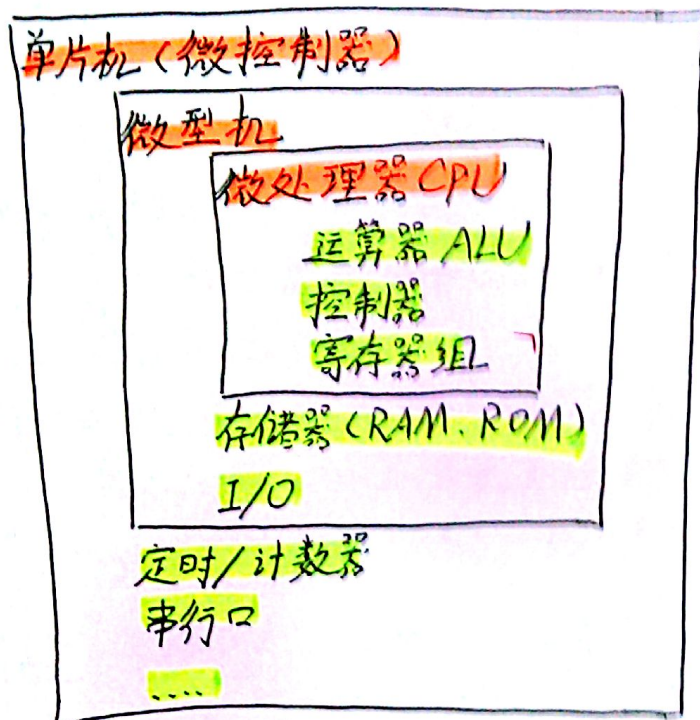 单片机（微控制器）
微型机
微处理器CPU
运算器ALU
控制器
寄存器组
存储器（RAM、ROM）
I/O
定时/计数器
串行口
....